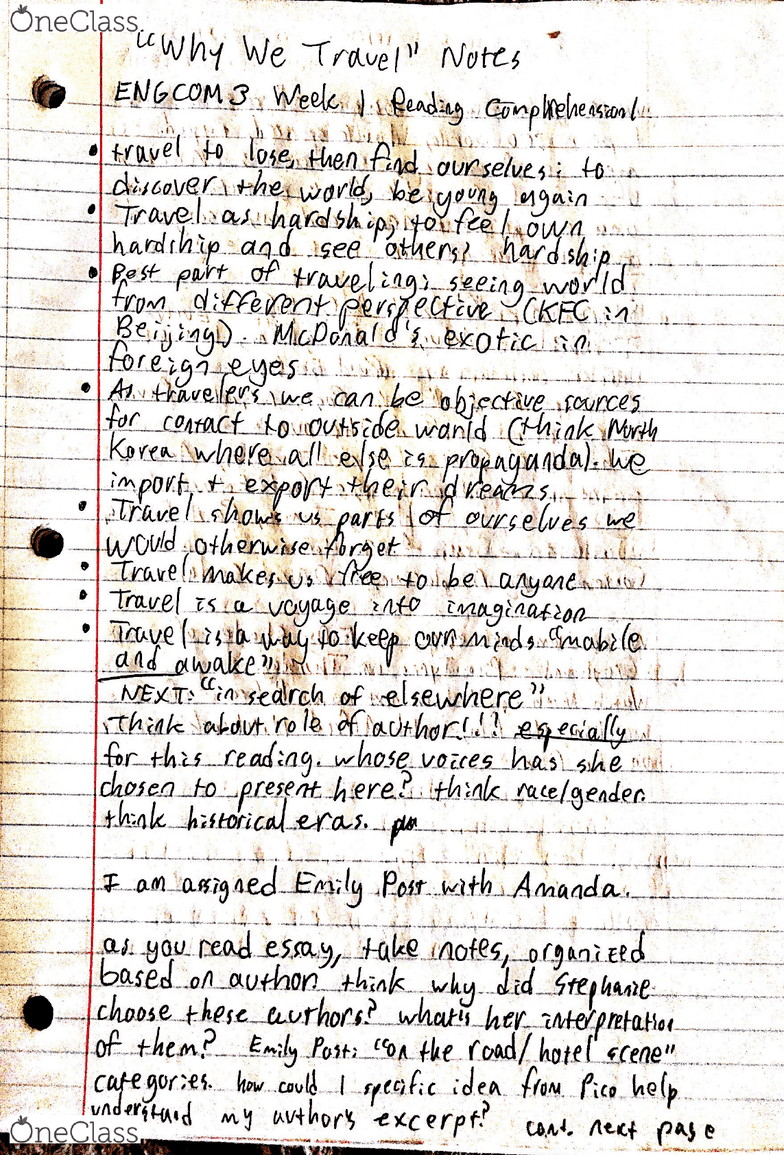 OneClass
"Why We Travel" Notes
ENGCOM3 Week 1 Reading Comprehension!
• travel to lose, then find ourselves; to
discover the world, be young again
• Travel as hardship; to feel own
hardship and see others' hardship
• Best part of traveling; seeing world
from different perspective (KFC in
Beijing). McDonald's exotic in
foreign eyes
• As travelers we can be objective sources
for contact to outside world (think North
Korea where all else is propaganda). we
import + export their dreams.
• Travel shows us parts of ourselves we
would otherwise forget
• Travel makes us free to be anyone
• Travel is a voyage into imagination
• Travel is a way to keep our minds "mobile
and awake"
NEXT: "in search of elsewhere"
Think about role of author!!! especially
for this reading. whose voices has she
chosen to present here? think race/gender.
think historical eras.
I am assigned Emily Post with Amanda.
as you read essay, take notes, organized
based on author think why did Stephanie
choose these authors? what's her interpretation
of them? Emily Post: "on the road/hotel scene"
categories. how could 1 specific idea from Pico help
understand my author's excerpt? cont. next page
OneClass